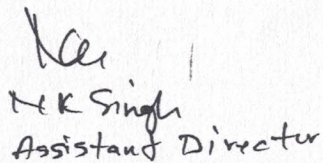 N K Singh
Assistant Director